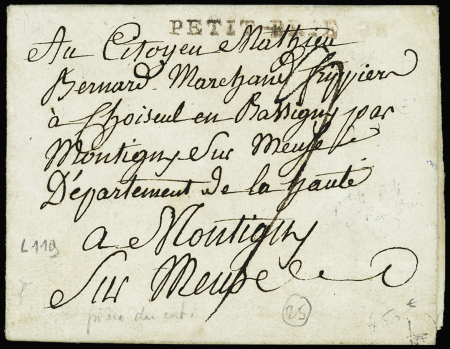 PETIT-BRIE
Au Citoyen Mathieu
Bernard Marchand frippier
à Choiseul en Bassigny par
Montigny Sur Meuse
Département de la haute
a Montigny
Sur Meuse
L119
25